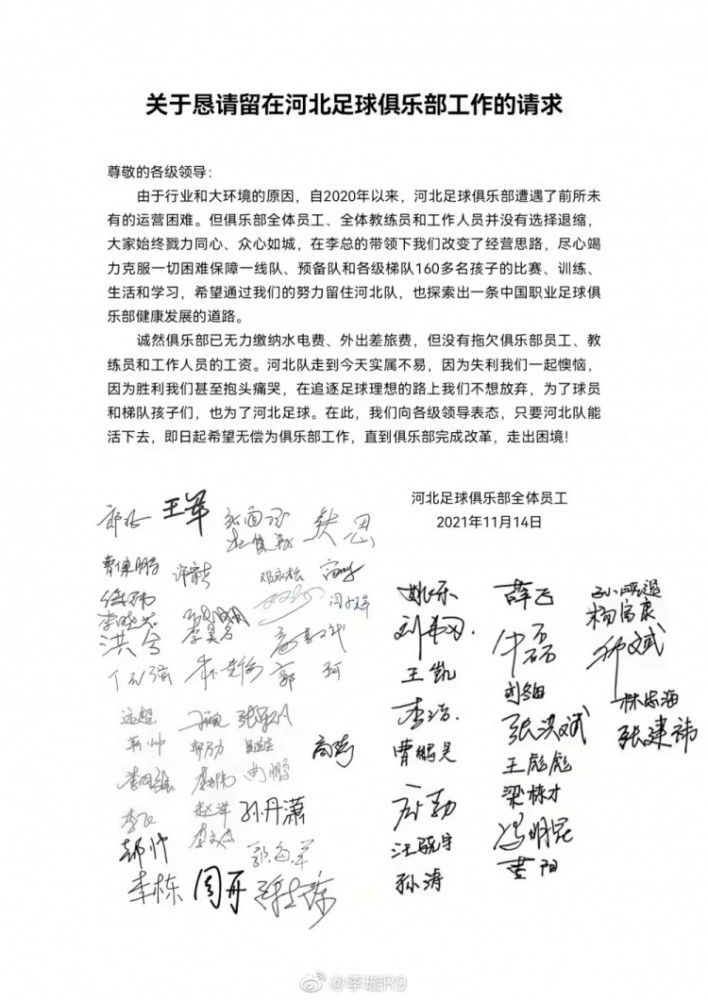 关于恳请留在河北足球俱乐部工作的请求
尊敬的各级领导：
由于行业和大环境的原因，自2020年以来，河北足球俱乐部遭遇了前所未
有的运营困难。但俱乐部全体员工、全体教练员和工作人员并没有选择退缩，
大家始终戮力同心、众心如城，在李总的带领下我们改变了经营思路，尽心竭
力克服一切困难保障一线队、预备队和各级梯队160多名孩子的比赛、训练、
生活和学习，希望通过我们的努力留住河北队，也探索出一条中国职业足球俱
乐部健康发展的道路。
诚然俱乐部已无力缴纳水电费、外出差旅费，但没有拖欠俱乐部员工、教
练员和工作人员的工资。河北队走到今天实属不易，因为失利我们一起懊恼，
因为胜利我们甚至抱头痛哭，在追逐足球理想的路上我们不想放弃，为了球员
和梯队孩子们，也为了河北足球。在此，我们向各级领导表态，只要河北队能
活下去，即日起希望无偿为俱乐部工作，直到俱乐部完成改革，走出困境！
河北足球俱乐部全体员工
2021年11月14日
王军
姚乐 薛飞
杨富康
王凯
李浩 张洪斌 林忠海
曹鹏昊 张建祎
王彪彪
梁栋才
汪晓宇 冯明昆
孙涛 董阳
孙丹潇
郭海军
李栋 周开
@李璇R9